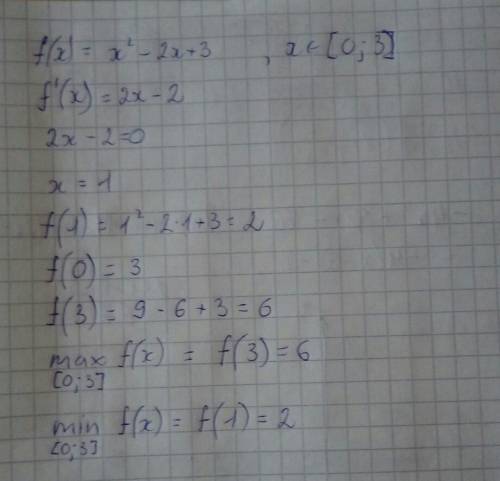 f(x) = x² - 2x + 3 , x ∈ [0; 3]
f'(x) = 2x - 2
2x - 2 = 0
x = 1
f(1) = 1² - 2·1 + 3 = 2
f(0) = 3
f(3) = 9 - 6 + 3 = 6
max f(x) = f(3) = 6
[0;3]
min f(x) = f(1) = 2
[0;3]